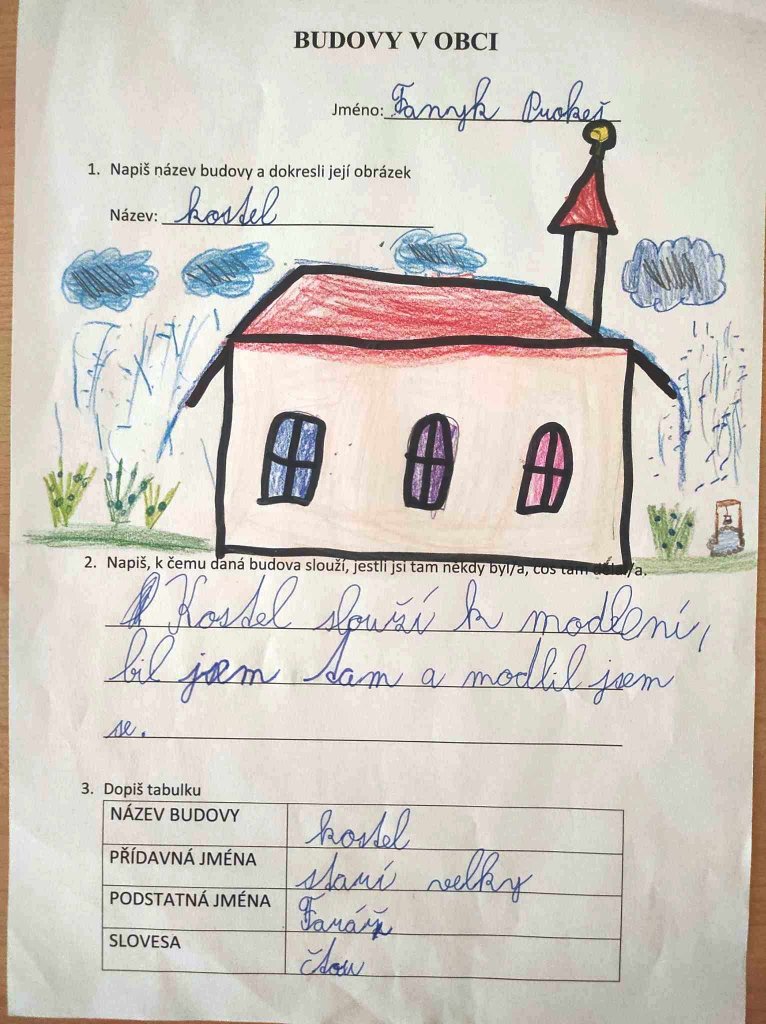 BUDOVY V OBCI
Jméno: Fanyk Prokeš
1. Napiš název budovy a dokresli její obrázek
Název: kostel
2. Napiš, k čemu daná budova slouží, jestli jsi tam někdy byl/a, cos tam dělal/a.
Kostel slouží k modlení,
bil jsem tam a modlil jsem
se.
3. Dopiš tabulku
NÁZEV BUDOVY kostel
PŘÍDAVNÁ JMÉNA starí velky
PODSTATNÁ JMÉNA Farář
SLOVESA čtou